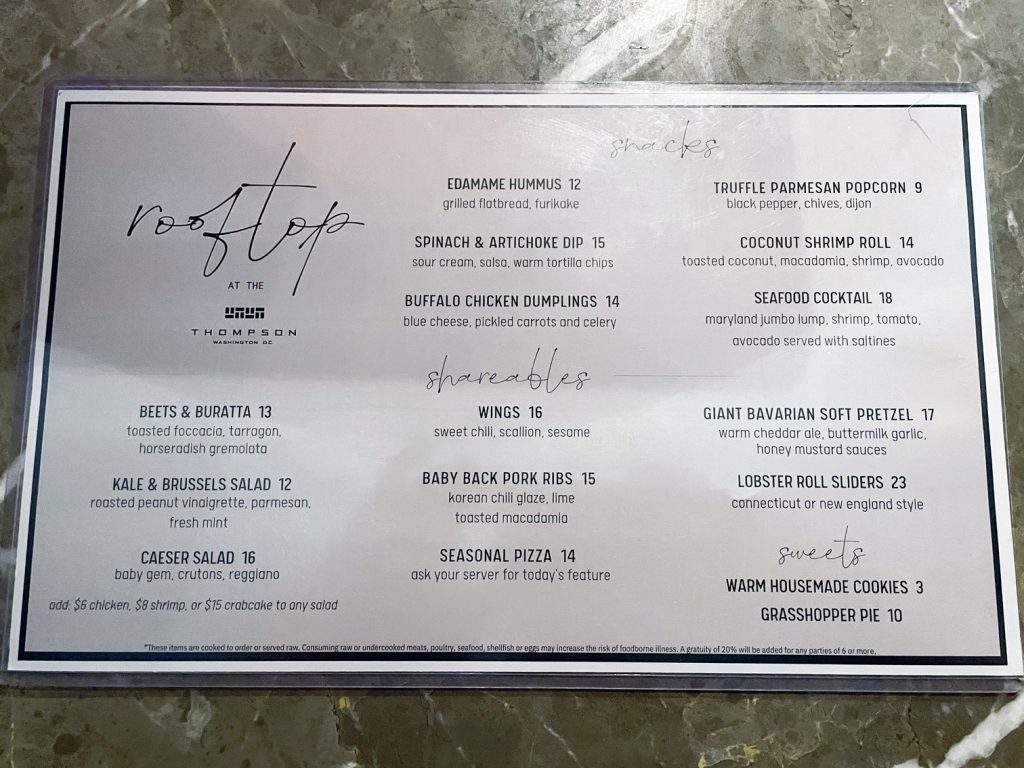 rooftop
AT THE
THOMPSON
WASHINGTON D.C.
snacks
EDAMAME HUMMUS 12
grilled flatbread, furikake
SPINACH & ARTICHOKE DIP 15
sour cream, salsa, warm tortilla chips
BUFFALO CHICKEN DUMPLINGS 14
blue cheese, pickled carrots and celery
TRUFFLE PARMESAN POPCORN 9
black pepper, chives, dijon
COCONUT SHRIMP ROLL 14
toasted coconut, macadamia, shrimp, avocado
SEAFOOD COCKTAIL 18
maryland jumbo lump, shrimp, tomato,
avocado served with saltines
shareables
BEETS & BURATTA 13
toasted foccacia, tarragon,
horseradish gremolata
KALE & BRUSSELS SALAD 12
roasted peanut vinaigrette, parmesan,
fresh mint
CAESER SALAD 16
baby gem, crutons, reggiano
add: $6 chicken, $8 shrimp, or $15 crabcake to any salad
WINGS 16
sweet chili, scallion, sesame
BABY BACK PORK RIBS 15
korean chili glaze, lime
toasted macadamia
SEASONAL PIZZA 14
ask your server for today's feature
GIANT BAVARIAN SOFT PRETZEL 17
warm cheddar ale, buttermilk garlic,
honey mustard sauces
LOBSTER ROLL SLIDERS 23
connecticut or new england style
sweets
WARM HOUSEMADE COOKIES 3
GRASSHOPPER PIE 10
*These items are cooked to order or served raw. Consuming raw or undercooked meats, poultry, seafood, shellfish or eggs may increase the risk of foodborne illness. A gratuity of 20% will be added for any parties of 6 or more.